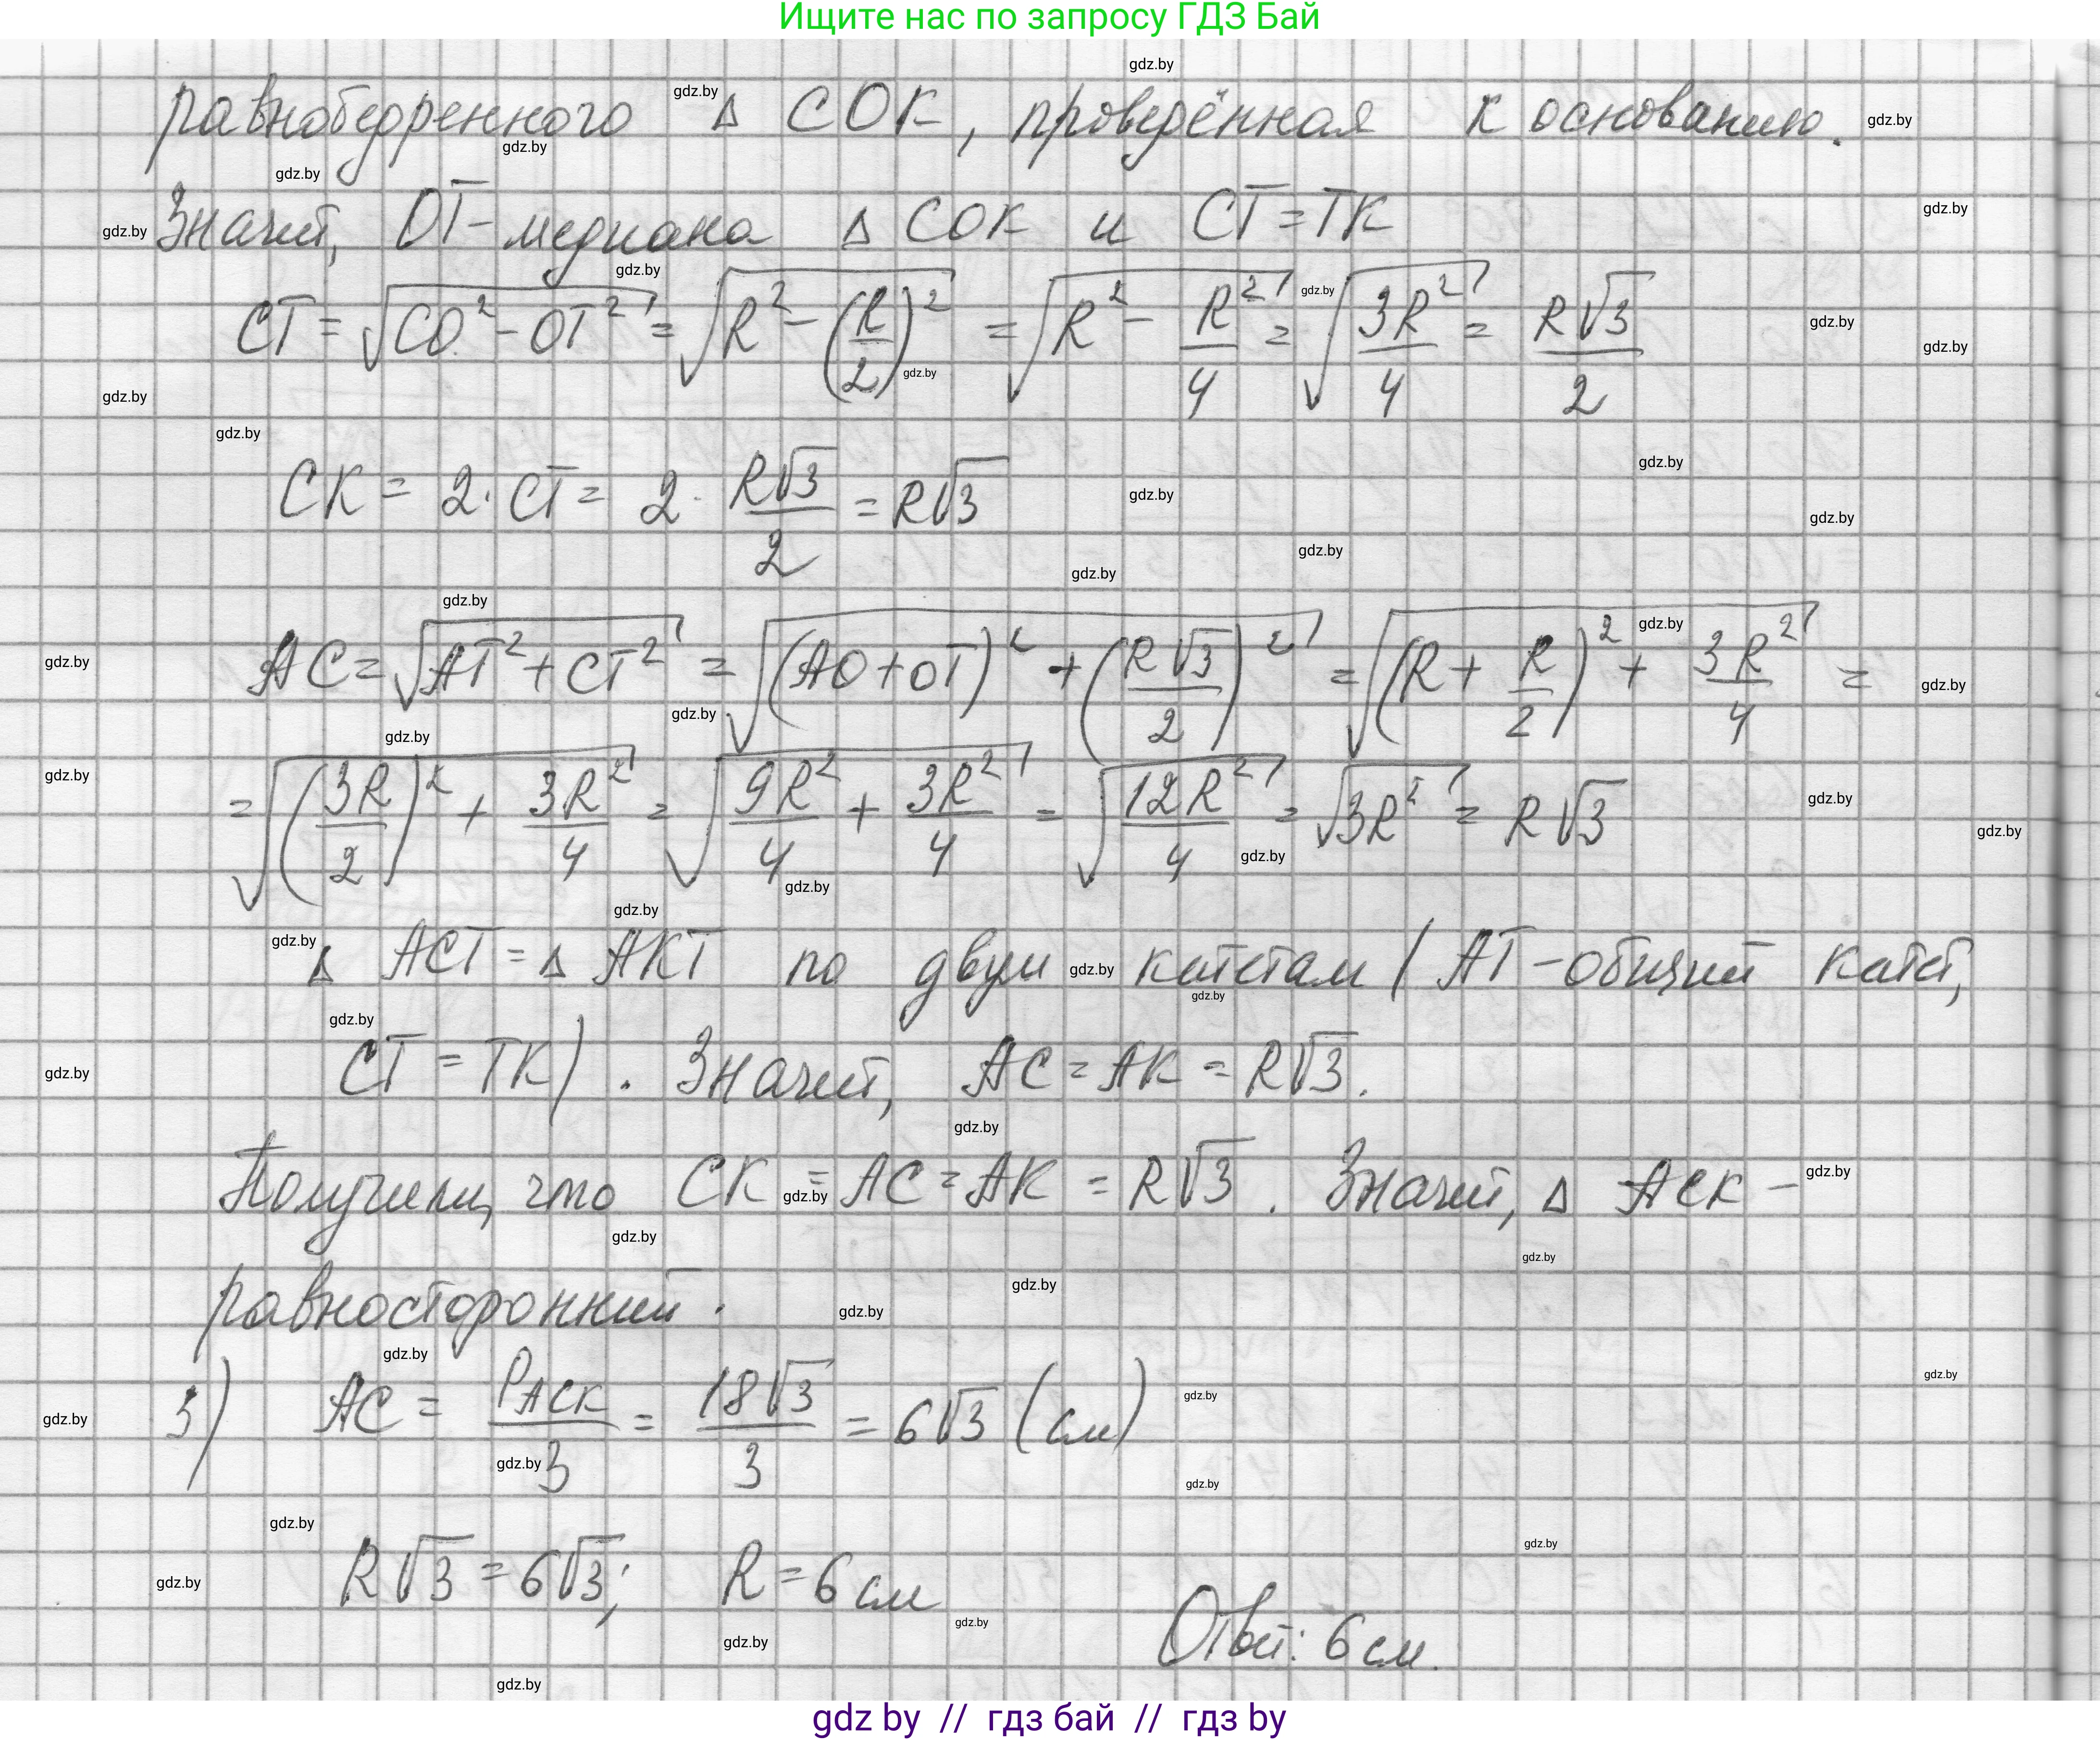 Ищите нас по запросу ГДЗ Бай
равнобедренного Δ СОК, проведённая к основанию.
Значит, ОТ - медиана Δ СОК и СТ = ТК
СТ = √(СО² - ОТ²) = √(R² - (R/2)²) = √(R² - R²/4) = √(3R²/4) = R√3/2
СК = 2 · СТ = 2 · R√3/2 = R√3
АС = √(АТ² + СТ²) = √((АО + ОТ)² + (R√3/2)²) = √((R + R/2)² + 3R²/4) =
= √((3R/2)² + 3R²/4) = √(9R²/4 + 3R²/4) = √(12R²/4) = √(3R²) = R√3
Δ АСТ = Δ АКТ по двум катетам (АТ - общий катет,
СТ = ТК). Значит, АС = АК = R√3.
Получили, что СК = АС = АК = R√3. Значит, Δ АСК -
равносторонний.
3) АС = P_АСК/3 = 18√3/3 = 6√3 (см)
R√3 = 6√3; R = 6 см
Ответ: 6 см.
gdz by // гдз бай // гдз by